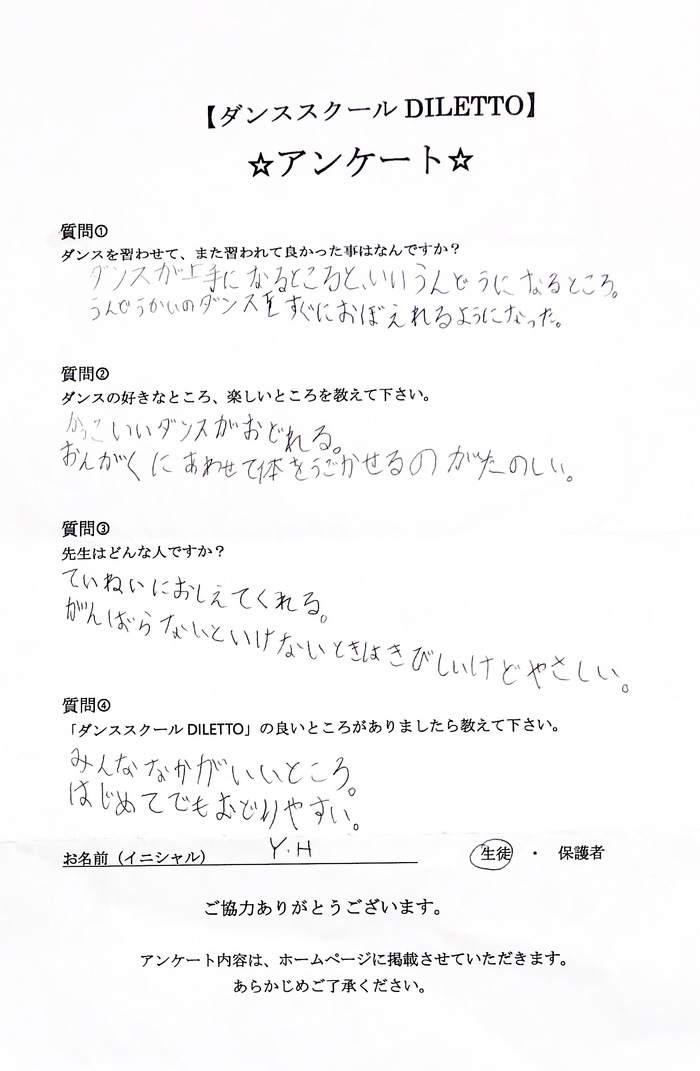 【ダンススクール DILETTO】
☆アンケート☆
質問①
ダンスを習わせて、また習われて良かった事はなんですか?
ダンスが上手になるところと、いいうんどうになるところ。
うんどうかいのダンスをすぐにおぼえれるようになった。
質問②
ダンスの好きなところ、楽しいところを教えて下さい。
かっこいいダンスがおどれる。
おんがくにあわせて体をうごかせるのがたのしい。
質問③
先生はどんな人ですか?
ていねいにおしえてくれる。
がんばらないといけないときはきびしいけどやさしい。
質問④
「ダンススクール DILETTO」の良いところがありましたら教えて下さい。
みんななかがいいところ。
はじめてでもおどりやすい。
お名前(イニシャル) Y.H 生徒 ・ 保護者
ご協力ありがとうございます。
アンケート内容は、ホームページに掲載させていただきます。
あらかじめご了承ください。